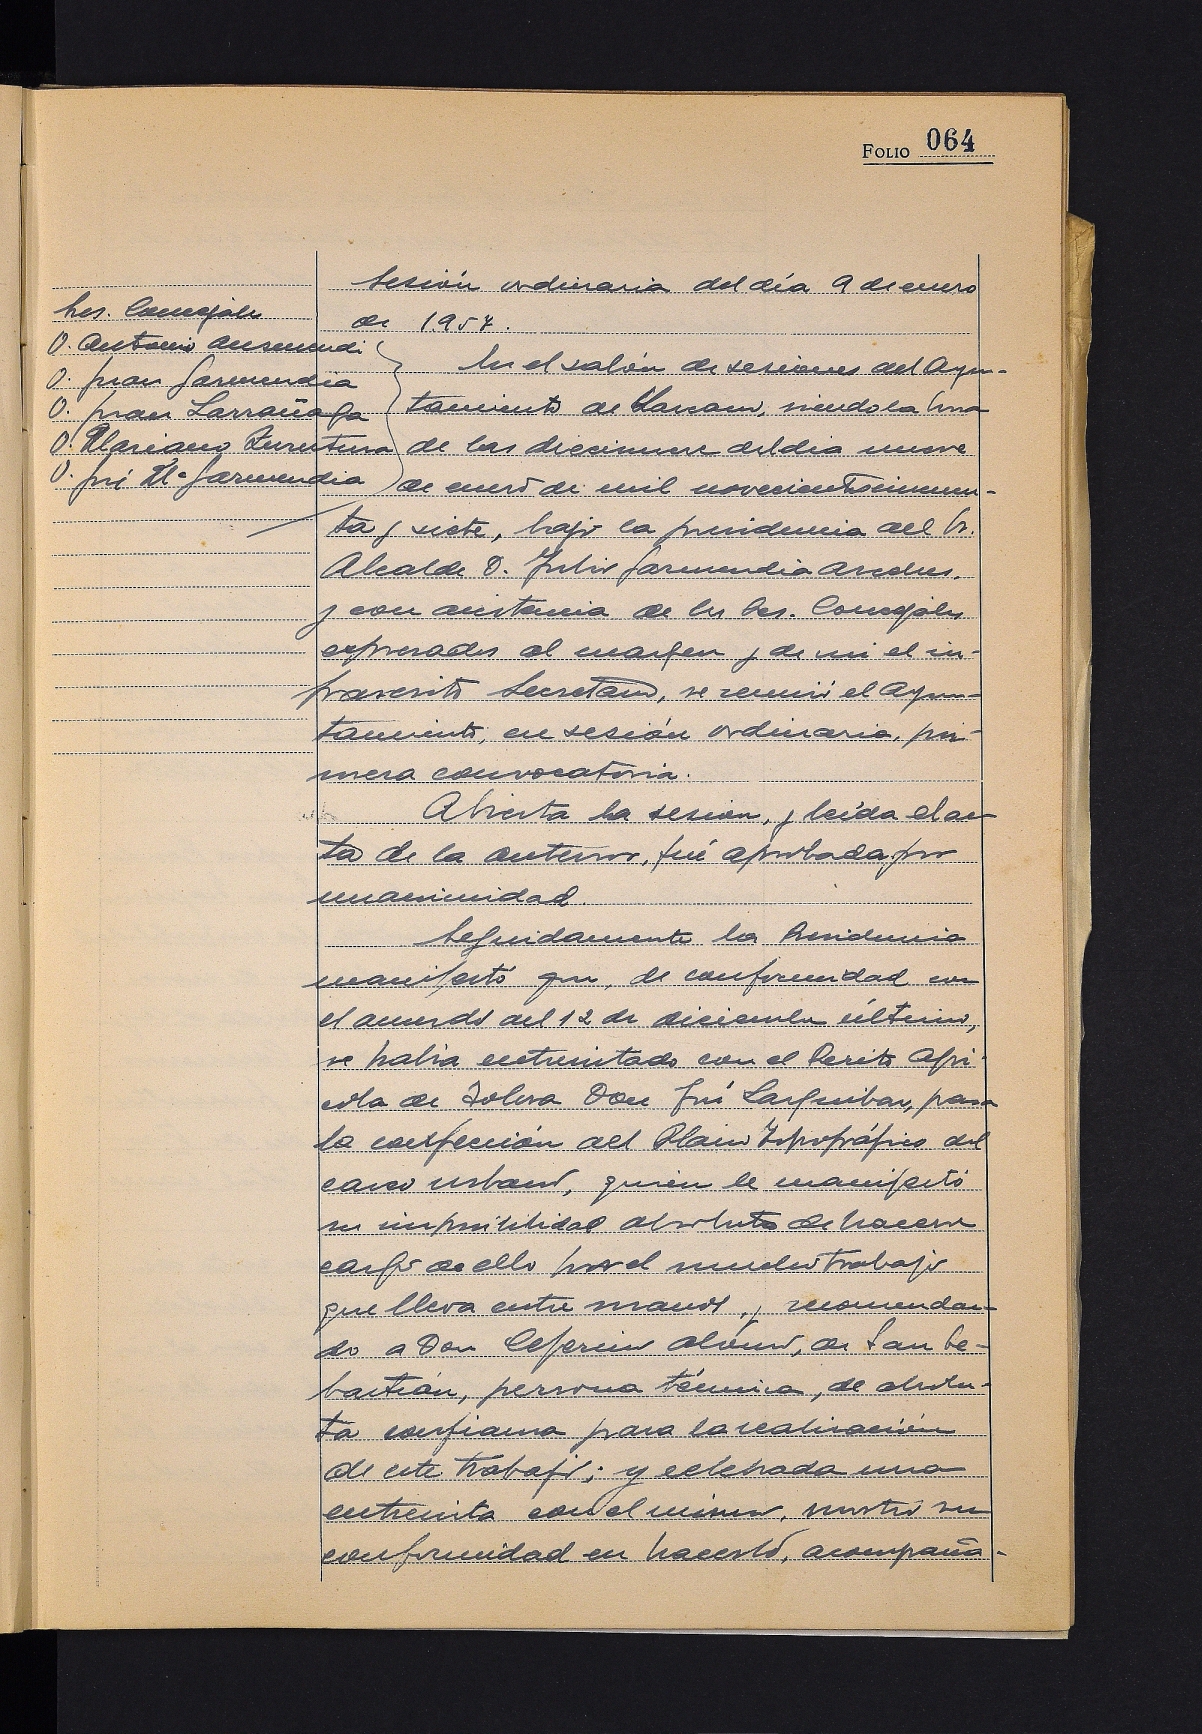 FOLIO 064
Sesión ordinaria del día 9 de enero
de 1957.
Sres. Concejales
D. Antonio Auzmendi
D. Juan Garmendia
D. Juan Larrañaga
D. Mariano Irureтura
D. José Mª Garmendia
En el salón de sesiones del Ayun-
tamiento de Lazcano, siendo la hora
de las diecinueve del día nueve
de enero de mil novecientos cincuen-
ta y siete, bajo la presidencia del Sr.
Alcalde D. Julio Garmendia
y con asistencia de los Sres. Concejales
expresados al margen y de mi el in-
frascrito Secretario, se reunió el Ayun-
tamiento, en sesión ordinaria, pri-
mera convocatoria.
Abierta la sesion, y leída el ac-
ta de la anterior, fué aprobada por
unanimidad.
Seguidamente la Presidencia
manifestó que, de conformidad con
el acuerdo del 12 de diciembre último,
se habia entrevistado con el Perito Agrí-
cola de Tolosa Don José Sarquibar, para
la confección del Plano Topográfico del
casco urbano, quien le manifestó
su imposibilidad absoluta de hacerse
cargo de ello por el mucho trabajo
que lleva entre manos, y recomendan-
do a Don Ceferino , de San Se-
bastián, persona técnica, de absolu-
ta confianza para la realización
de este trabajo; y celebrada una
entrevista con el mismo, mostró su
conformidad en hacerlo, acompaña-